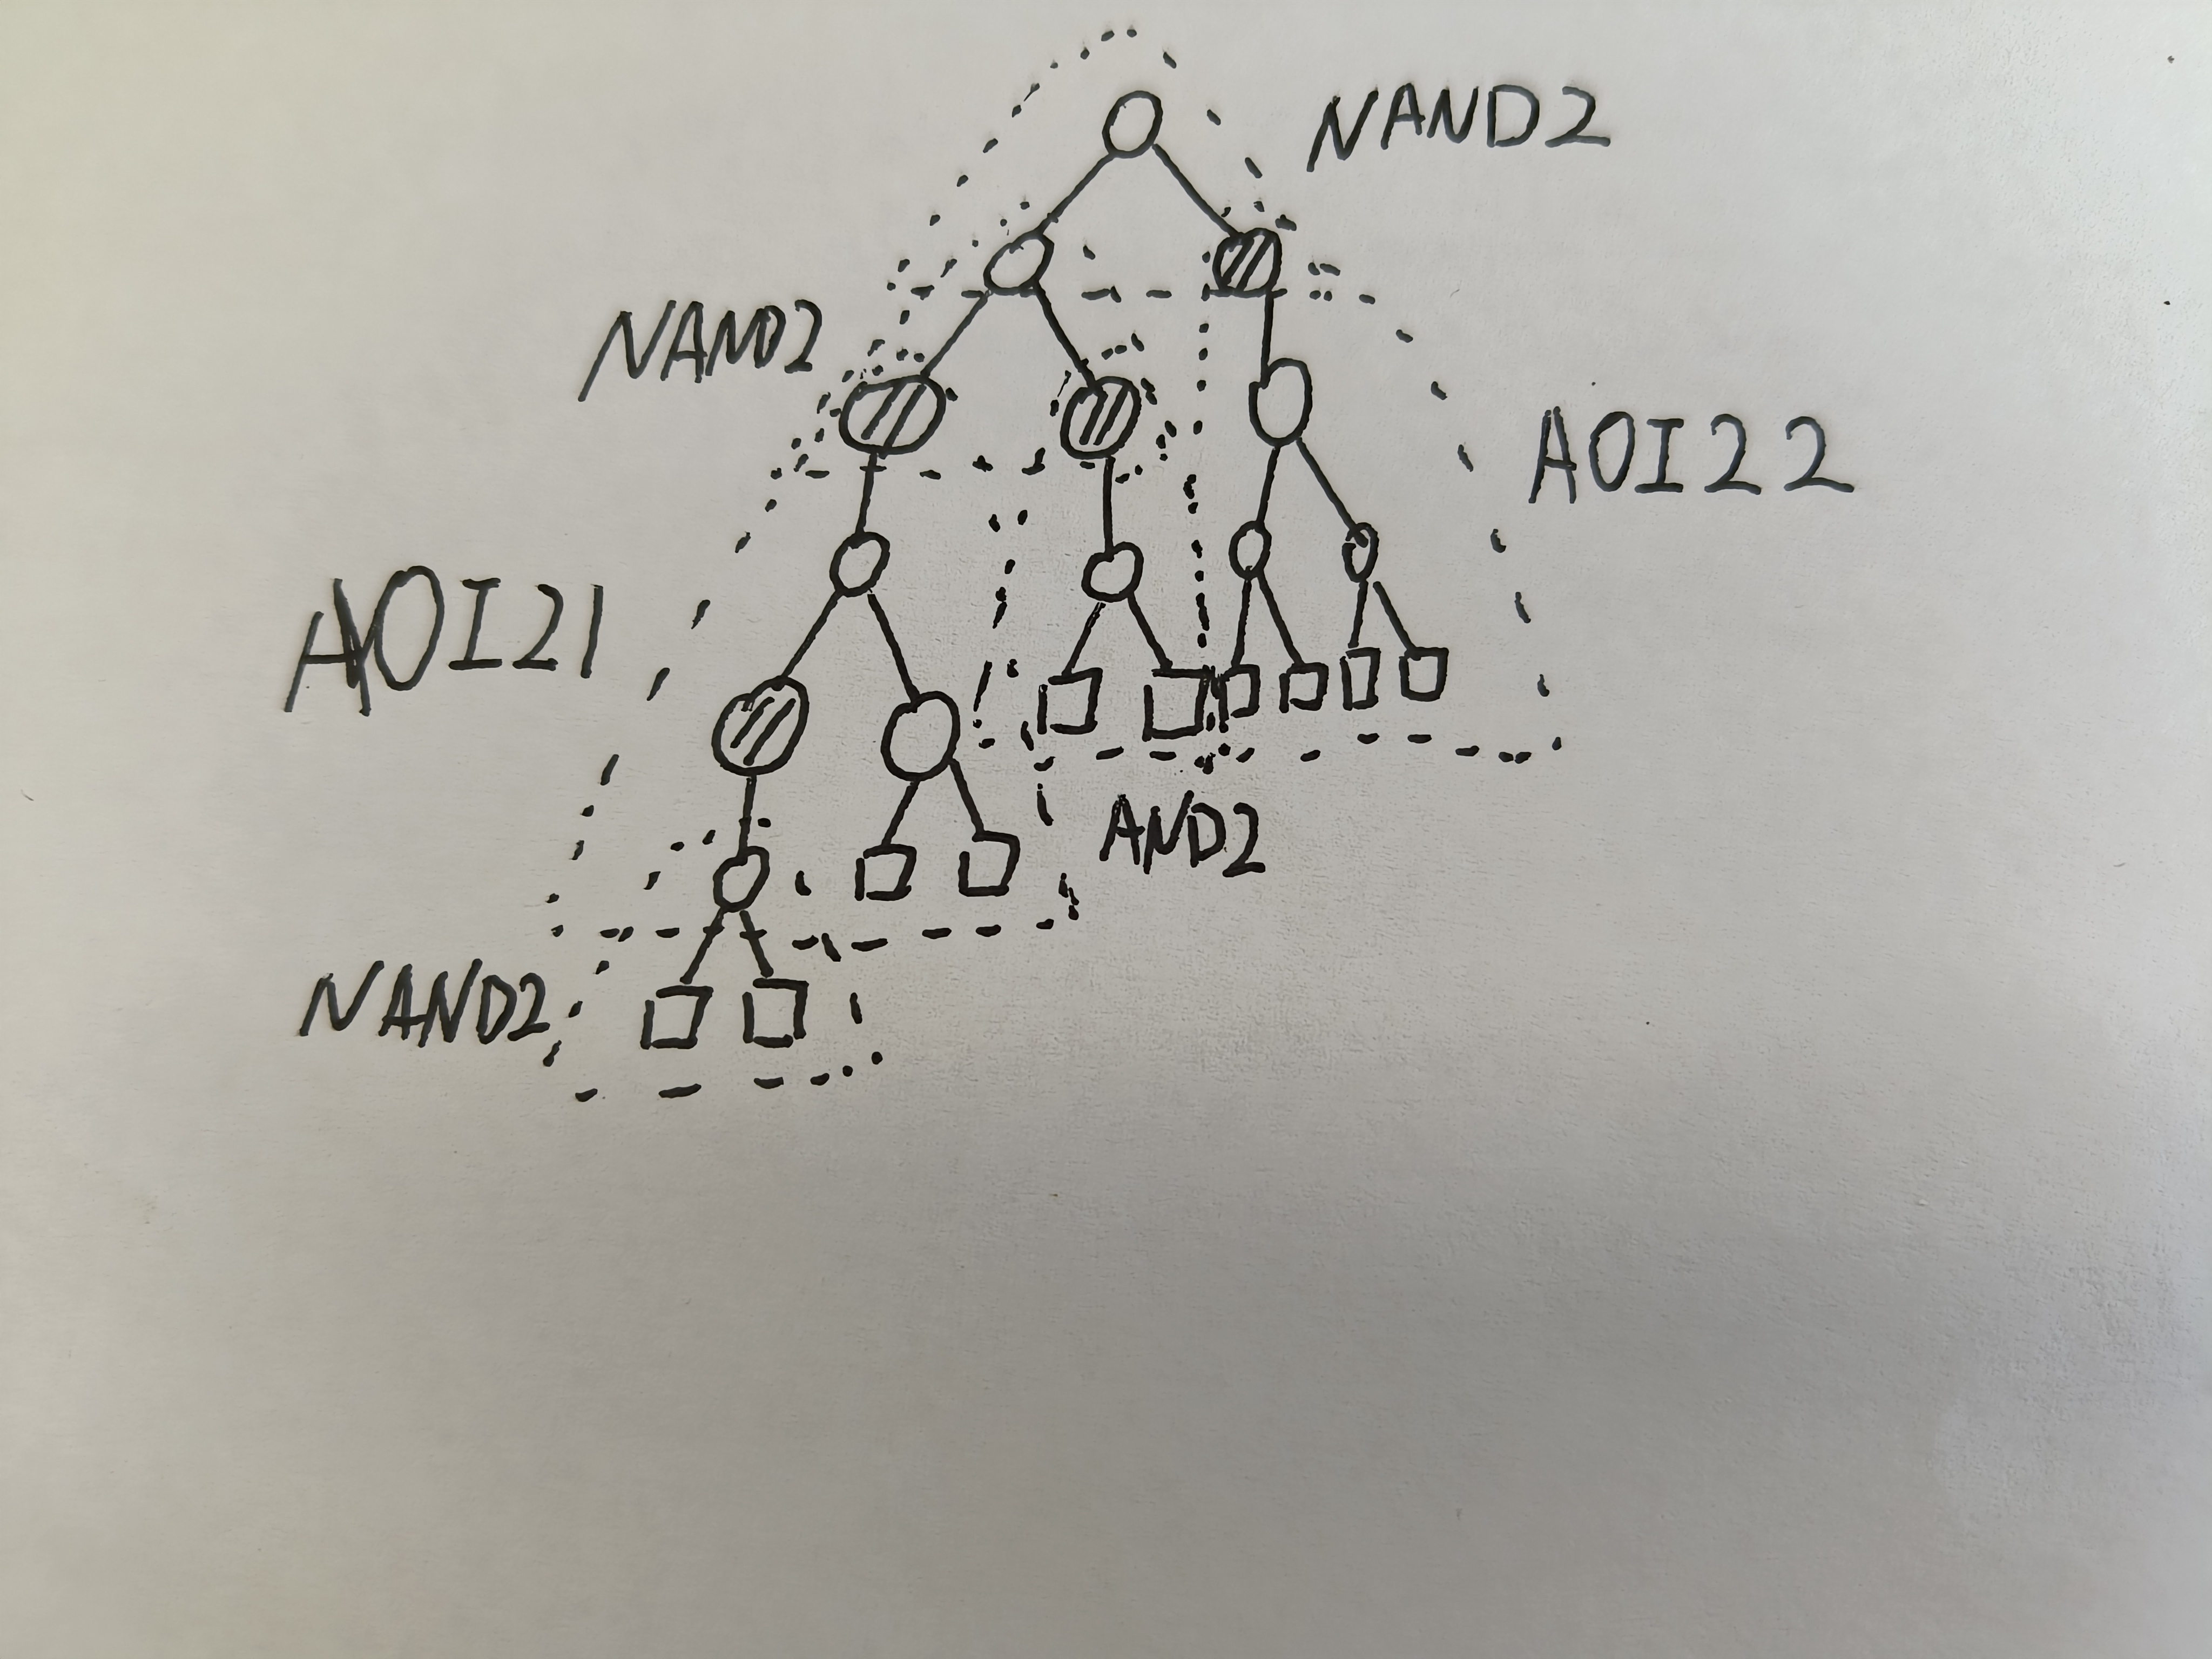 NAND2
NAND2
AOI22
AOI21
AND2
NAND2